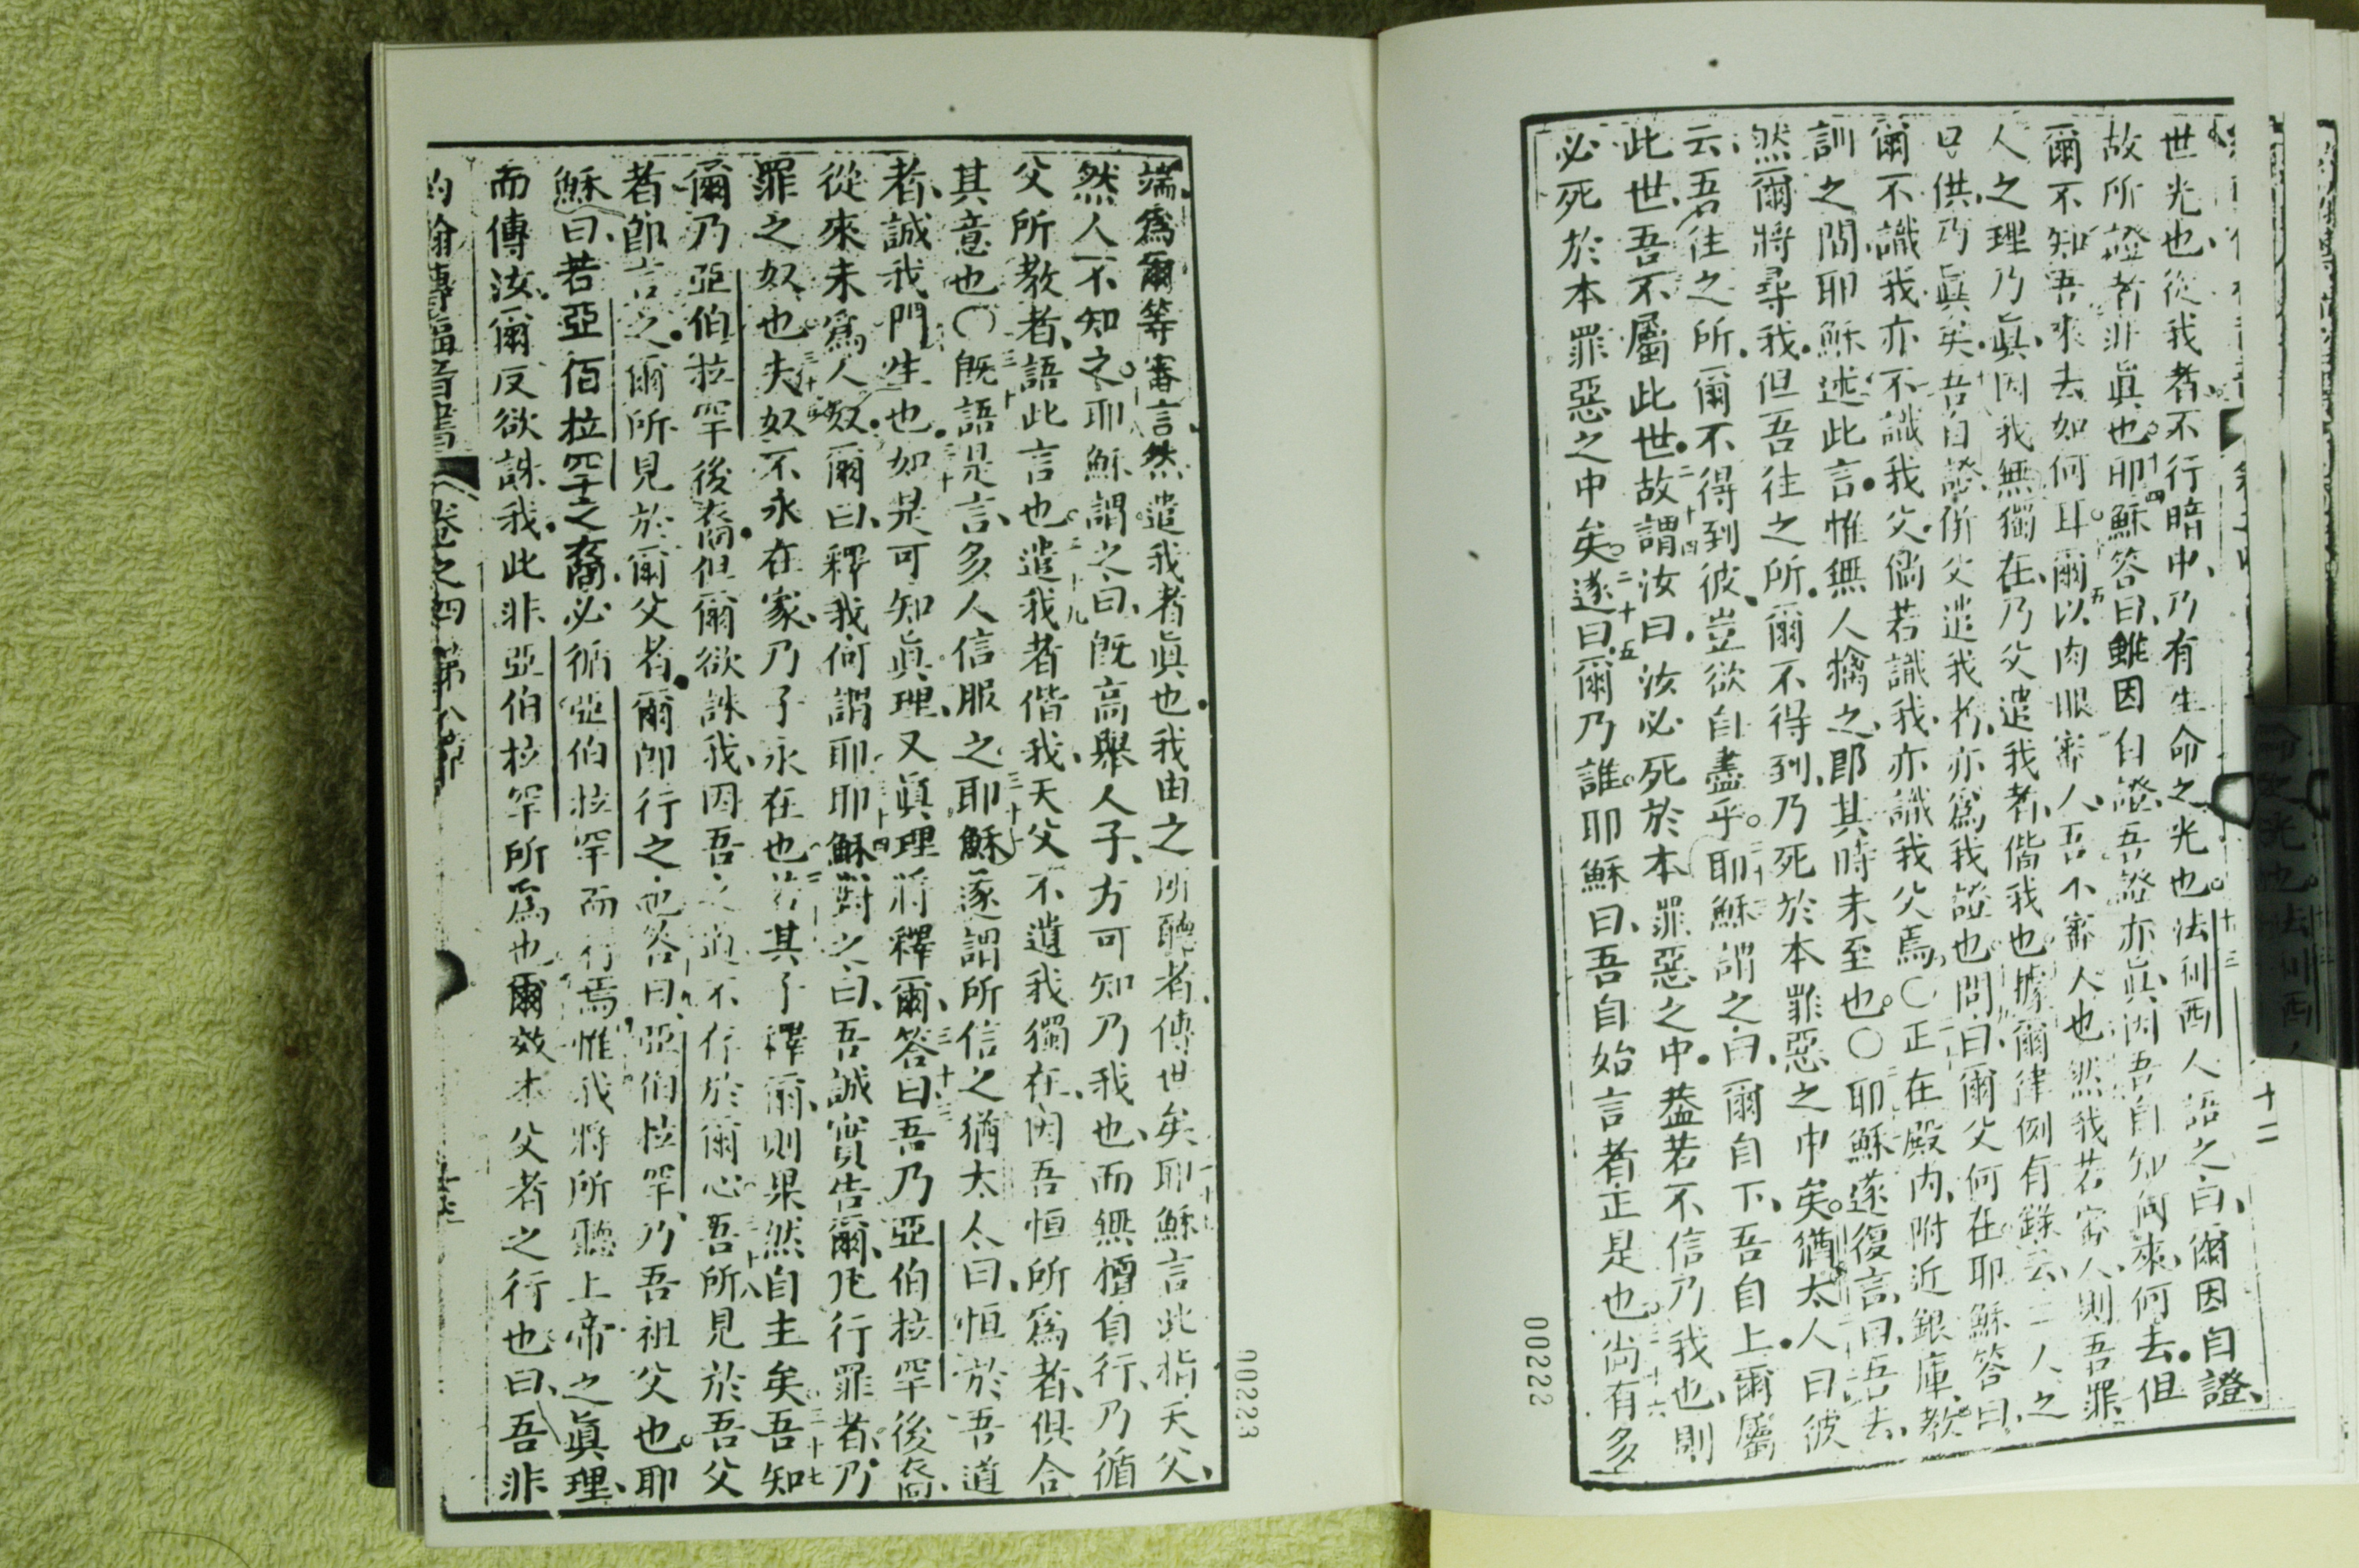 世光也從我者、不行暗中、乃有生命之光也。十三法利西人語之曰、爾因自證、
故所證者非眞也。十四耶穌答曰、雖因自證、吾證亦眞、因吾自知何來、何去。但
爾不知吾來去如何耳。十五爾以肉眼審人、吾不審人也然我若審人、則吾罪
人之理乃眞、因我無獨在、乃父遣我者、偕我也據爾律例有錄云、二人之
口供、乃眞矣。吾自證、併父遣我者、亦爲我證也問曰、爾父何在耶穌答曰、
爾不識我、亦不識我父。倘若識我、亦識我父焉〇正在殿內、附近銀庫、教
訓之間耶穌述此言。惟無人擒之、卽其時未至也。〇耶穌遂復言曰、吾去、
然爾將尋我。但吾往之所。爾不得到、乃死於本罪惡之中矣。猶太人曰彼
云、吾往之所。爾不得到彼。豈欲自盡乎。耶穌謂之曰、爾自下、吾自上。爾屬
此世、吾不屬此世。二十四故謂汝曰、汝必死於本罪惡之中。蓋若不信乃我也、則
必死於本罪惡之中矣。二十五遂曰、爾乃誰。耶穌曰、吾自始言者正是也。二十六尙有多
十二
00222
端、爲爾等審言然遣我者眞也。我由之所聽者、傳世矣耶穌言此指天父、
然人不知之。耶穌謂之曰、旣高舉人子、方可知乃我也、而無擅自行、乃循
父所教者、語此言也。二十九遣我者偕我、天父不遺我獨在、因吾恒所爲者、俱合
其意也〇三十旣語是言、多人信服之三十一耶穌遂謂所信之猶太人曰、恒於吾道
者、誠我門生也。如是可知眞理、又眞理將釋爾、三十三答曰、吾乃亞伯拉罕後裔、
從來未爲人奴。爾曰、釋我何謂耶三十四耶穌對之曰、吾誠實告爾、凡行罪者、乃
罪之奴也三十五夫奴不永在家、乃子永在也若其子釋爾、則果然自主矣三十七吾知
爾乃亞伯拉罕後裔。但爾欲誅我、因吾之道不存於爾心三十八吾所見於吾父
者、卽言之。爾所見於爾父者。爾卽行之也答曰、亞伯拉罕、乃吾祖父也。耶
穌曰、若亞伯拉罕之裔、必循亞伯拉罕而行焉惟我將所聽上帝之眞理、
而傳汝、爾反欲誅我。此非亞伯拉罕所爲也爾效本父者之行也曰、吾非
約翰傳福音書 卷之四 第八章
00223